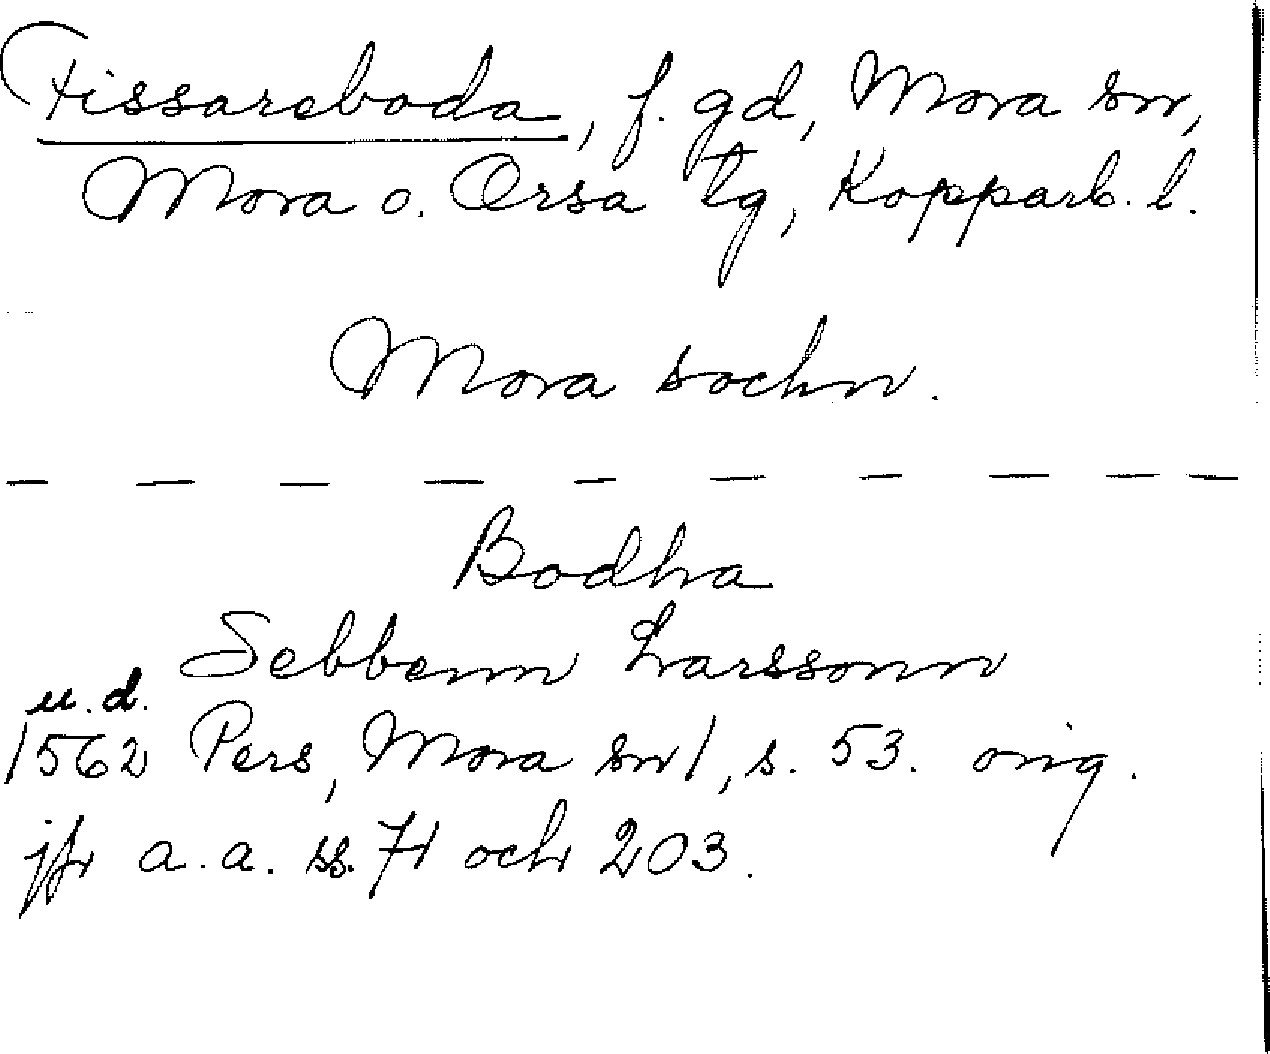 Fissareboda, f. gd, Mora sn,
Mora o. Orsa tg, Kopparb. l.
Mora sochn.
— — — — — — — — — —
Bodha
Sebbenn Larssonn
u.d.
1562 Pers, Mora sn/, s. 53. orig.
jfr a.a. ss. 71 och 203.